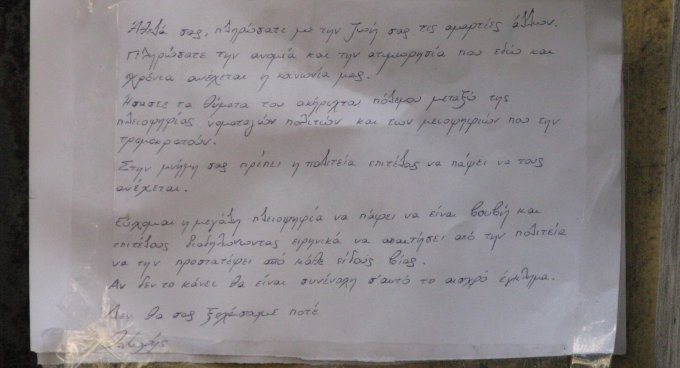 Άθελά σας, πληρώσατε με την ζωή σας τις αμαρτίες άλλων.
Πληρώσατε την ανομία και την ατιμωρησία που εδώ και
χρόνια ανέχεται η κοινωνία μας.
Ήσασταν τα θύματα του ακήρυχτου πολέμου μεταξύ της
πλειοψηφίας νομοταγών πολιτών και των μειοψηφιών που την
τρομοκρατούν.
Στην μνήμη σας πρέπει η πολιτεία επιτέλους να πάψει να τους
ανέχεται.
Εύχομαι η μεγάλη πλειοψηφία να πάψει να είναι βουβή και
επιτέλους διαδηλώνοντας ειρηνικά να απαιτήσει από την πολιτεία
να την προστατέψει από κάθε είδους βίας.
Αν δεν το κάνει θα είναι συνένοχη σ'αυτό το αισχρό έγκλημα.
Δεν θα σας ξεχάσουμε ποτέ